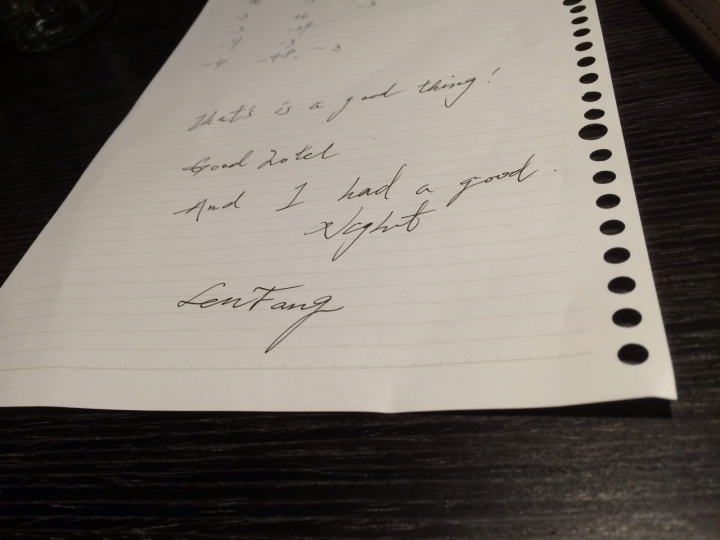 -3 +6 -3
-3 -29
-4 -3
-4 -48. -3
That's is a good thing!
Good Hotel.
And I had a good.
Night
LenFang